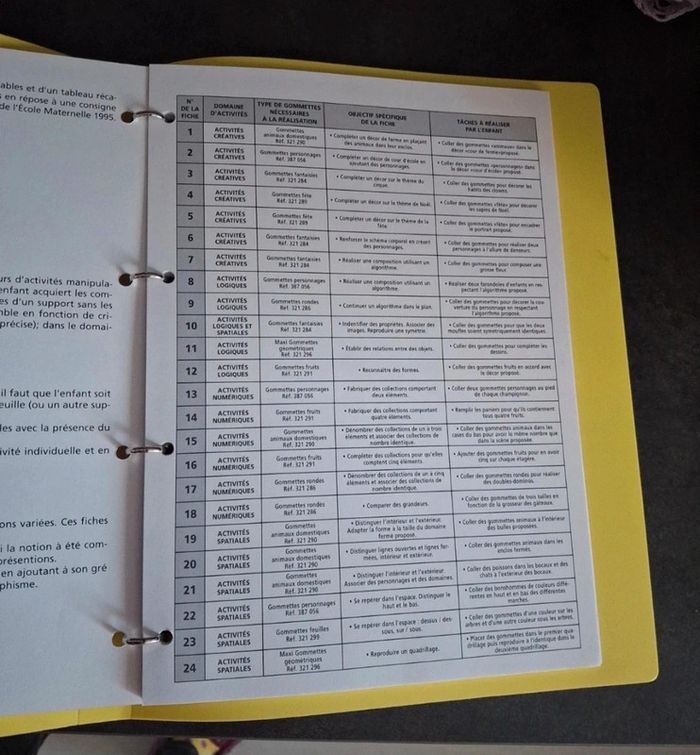 ables et d'un tableau réca-
s en répose à une consigne
de l'École Maternelle 1995.
urs d'activités manipula-
enfant acquiert les com-
es d'un support sans les
mble en fonction de cri-
précise); dans le domai-
il faut que l'enfant soit
euille (ou un autre sup-
les avec la présence du
ivité individuelle et en
ons variées. Ces fiches
i la notion à été com-
présentions.
en ajoutant à son gré
phisme.
N° DE LA FICHE DOMAINE D'ACTIVITÉS TYPE DE GOMMETTES NÉCESSAIRES À LA RÉALISATION OBJECTIF SPÉCIFIQUE DE LA FICHE TÂCHES À RÉALISER PAR L'ENFANT
1 ACTIVITÉS CRÉATIVES Gommettes animaux domestiques Réf. 321 290 • Compléter un décor de ferme en plaçant des animaux dans leur enclos. • Coller des gommettes «animaux» dans le décor «cour de ferme»proposé.
2 ACTIVITÉS CRÉATIVES Gommettes personnages Réf. 387 056 • Compléter un décor de cour d'école en ajoutant des personnages. • Coller des gommettes «personnages» dans le décor «cour d'école» proposé.
3 ACTIVITÉS CRÉATIVES Gommettes fantaisies Réf. 321 284 • Compléter un décor sur le thème du cirque. • Coller des gommettes pour décorer les habits des clowns.
4 ACTIVITÉS CRÉATIVES Gommettes fête Réf. 321 289 • Compléter un décor sur le thème de Noël. • Coller des gommettes «fête» pour décorer les sapins de Noël.
5 ACTIVITÉS CRÉATIVES Gommettes fête Réf. 321 289 • Compléter un décor sur le thème de la fête. • Coller des gommettes «fête» pour encadrer le portrait proposé.
6 ACTIVITÉS CRÉATIVES Gommettes fantaisies Réf. 321 284 • Renforcer le schéma corporel en créant des personnages. • Coller des gommettes pour réaliser deux personnages à l'allure de danseurs.
7 ACTIVITÉS CRÉATIVES Gommettes fantaisies Réf. 321 284 • Réaliser une composition utilisant un algorithme. • Coller des gommettes pour composer une grosse fleur.
8 ACTIVITÉS LOGIQUES Gommettes personnages Réf. 387 056 • Réaliser une composition utilisant un algorithme. • Réaliser deux farandoles d'enfants en respectant l'algorithme proposé.
9 ACTIVITÉS LOGIQUES Gommettes rondes Réf. 321 286 • Continuer un algorithme dans le plan. • Coller des gommettes pour décorer la couverture du personnage en respectant l'algorithme proposé.
10 ACTIVITÉS LOGIQUES ET SPATIALES Gommettes fantaisies Réf. 321 284 • Indentifier des propriétés. Associer des images. Reproduire une symétrie. • Coller des gommettes pour que les deux moufles soient symétriquement identiques.
11 ACTIVITÉS LOGIQUES Maxi Gommettes géométriques Réf. 321 296 • Établir des relations entre des objets. • Coller des gommettes pour compléter les dessins.
12 ACTIVITÉS LOGIQUES Gommettes fruits Réf. 321 291 • Reconnaître des formes. • Coller des gommettes fruits en accord avec le décor proposé.
13 ACTIVITÉS NUMÉRIQUES Gommettes personnages Réf. 387 056 • Fabriquer des collections comportant deux éléments. • Coller deux gommettes personnages au pied de chaque champignon.
14 ACTIVITÉS NUMÉRIQUES Gommettes fruits Réf. 321 291 • Fabriquer des collections comportant quatre éléments. • Remplir les paniers pour qu'ils contiennent tous quatre fruits.
15 ACTIVITÉS NUMÉRIQUES Gommettes animaux domestiques Réf. 321 290 • Dénombrer des collections de un à trois éléments et associer des collections de nombre identique. • Coller des gommettes animaux dans les cases du bas pour avoir le même nombre que dans la scène proposée.
16 ACTIVITÉS NUMÉRIQUES Gommettes fruits Réf. 321 291 • Compléter des collections pour qu'elles comptent cinq éléments. • Ajouter des gommettes fruits pour en avoir cinq sur chaque étagère.
17 ACTIVITÉS NUMÉRIQUES Gommettes rondes Réf. 321 286 • Dénombrer des collections de un à cinq éléments et associer des collections de nombre identique. • Coller des gommettes rondes pour réaliser des doubles-dominos.
18 ACTIVITÉS NUMÉRIQUES Gommettes rondes Réf. 321 286 • Comparer des grandeurs. • Coller des gommettes de trois tailles en fonction de la grosseur des gâteaux.
19 ACTIVITÉS SPATIALES Gommettes animaux domestiques Réf. 321 290 • Distinguer l'intérieur et l'extérieur. Adapter la forme à la taille du domaine fermé proposé. • Coller des gommettes animaux à l'intérieur des bulles proposées.
20 ACTIVITÉS SPATIALES Gommettes animaux domestiques Réf. 321 290 • Distinguer lignes ouvertes et lignes fermées, intérieur et extérieur. • Coller des gommettes animaux dans les enclos fermés.
21 ACTIVITÉS SPATIALES Gommettes animaux domestiques Réf. 321 290 • Distinguer l'intérieur et l'extérieur. Associer des personnages et des domaines. • Coller des poissons dans les bocaux et des chats à l'extérieur des bocaux.
22 ACTIVITÉS SPATIALES Gommettes personnages Réf. 387 056 • Se repérer dans l'espace. Distinguer le haut et le bas. • Coller des bonshommes de couleurs différentes en haut et en bas des différentes marches.
23 ACTIVITÉS SPATIALES Gommettes feuilles Réf. 321 299 • Se repérer dans l'espace : dessus / dessous, sur / sous. • Coller des gommettes d'une couleur sur les arbres et d'une autre couleur sous les arbres.
24 ACTIVITÉS SPATIALES Maxi Gommettes géométriques Réf. 321 296 • Reproduire un quadrillage. • Placer des gommettes dans le premier quadrillage puis reproduire à l'identique dans le deuxième quadrillage.